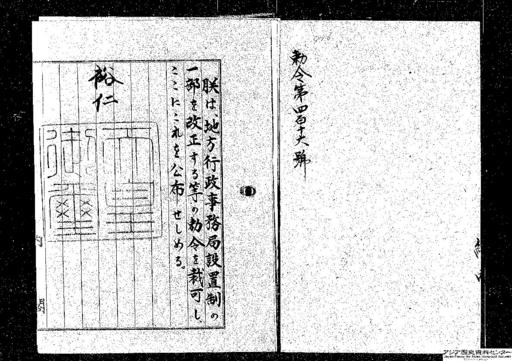 勅令第四百十六號
朕は、地方行政事務局設置制の
一部を改正する等の勅令を裁可し、
ここにこれを公布せしめる。
裕仁
天皇御璽
アジア歴史資料センター